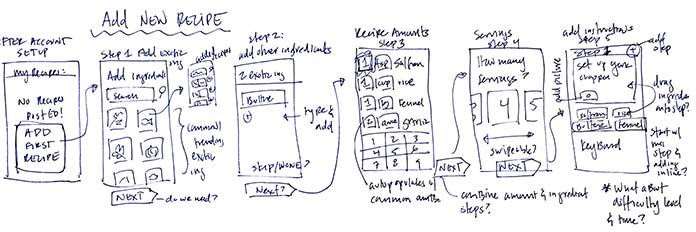 Add NEW RECIPE
AFTER ACCOUNT
SETUP
my Recipes:
NO RECIPES
POSTED!
ADD
FIRST
RECIPE
Step 1 Add exotic
ing
Add ingredients
Search
NEXT
do we need?
common/
trending
exotic
ing
step 2:
add other ingredients
2 exotic ing
Butter
type &
add
skip/NONE?
Next?
Recipe Amounts
step 3
1 tsp Saffron
1 cup rice
1 lb Fennel
1
1 2 3
4 5 6
7 8 9
NEXT
autopopulates w/
common amts
combine amount & ingredient
steps?
Servings
step 4
How many
servings?
4 5
swipeable?
NEXT
add picture
add instructions
step 5
Step 1
add
step
set up your
drag
ingredients
into step?
saffron rice
Butter Fennel
KeyBoard
step & adding
inline?
* What about
difficulty level
& time?